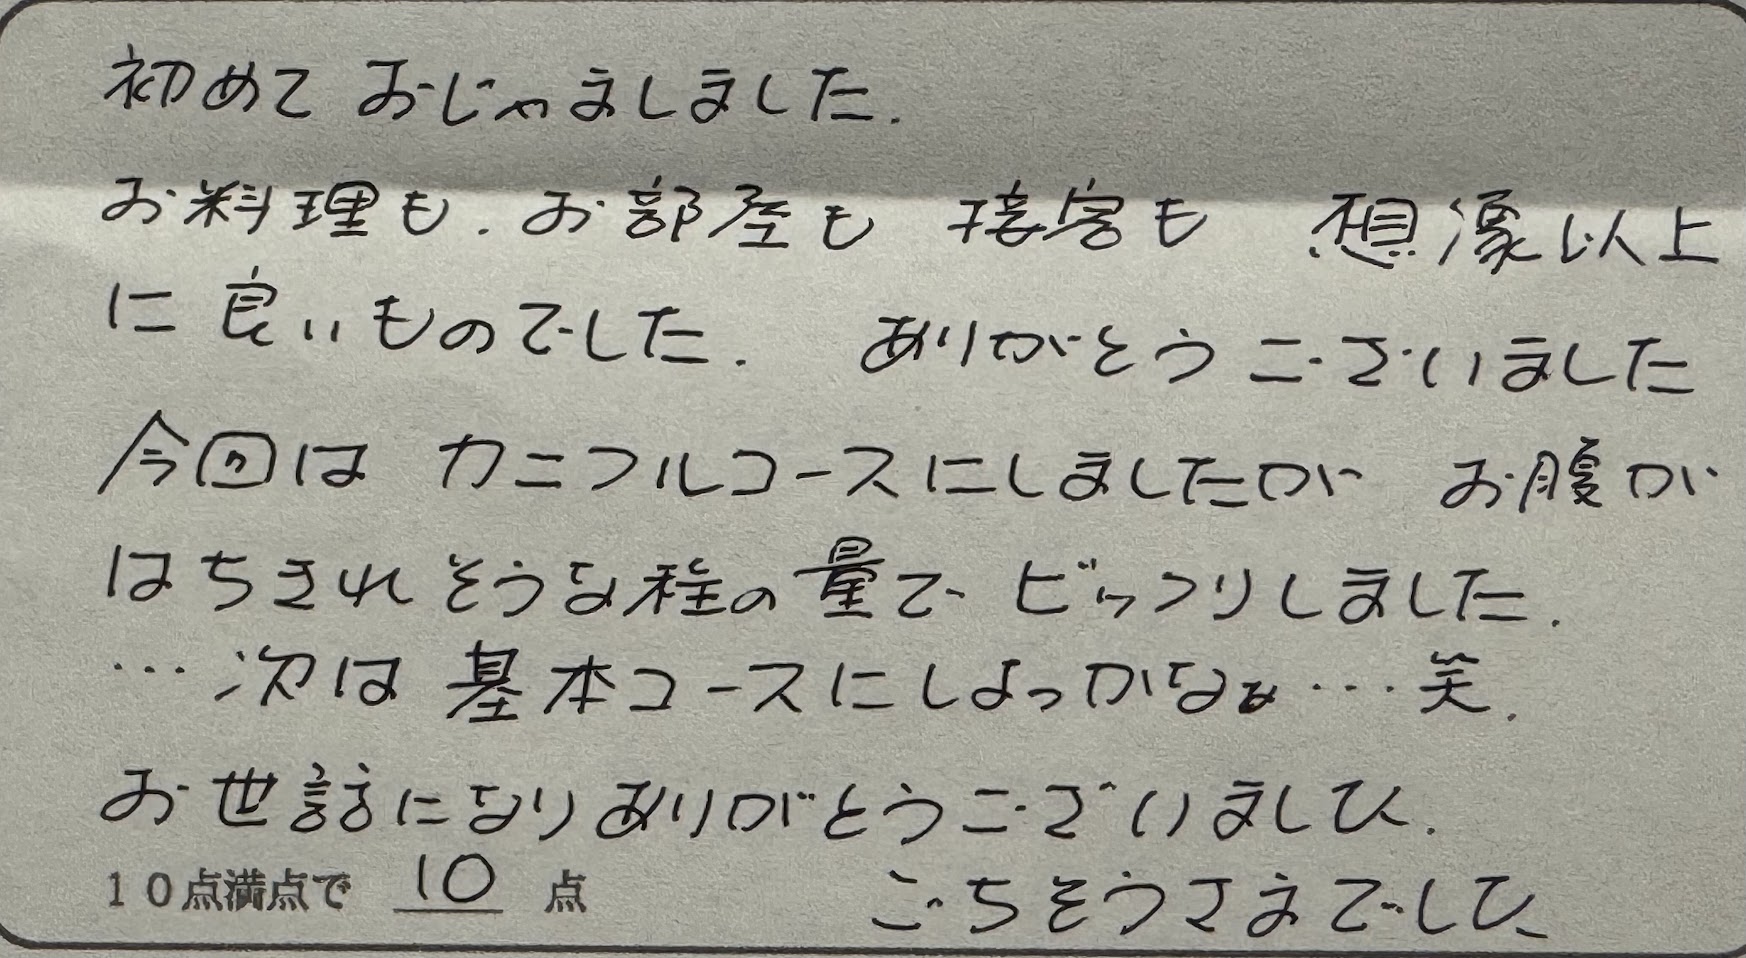 初めて おじゃましました.
お料理も. お部屋も 接客も 想像以上
に良いものでした. ありがとうございました
今回は カニフルコースにしましたが お腹が
はちきれそうな程の量で ビックリしました.
…次は 基本コースにしよっかなぁ…笑.
お世話になりありがとうございました.
10点満点で 10 点
ごちそうさまでした